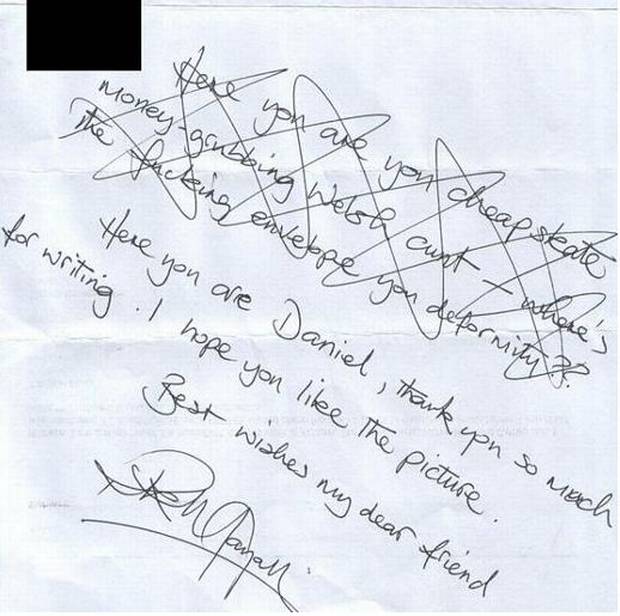 Here you are you cheapskate
money-grubbing Welsh cunt – where's
the fucking envelope you deformity??
Here you are Daniel, thank you so much
for writing. I hope you like the picture.
Best wishes my dear friend